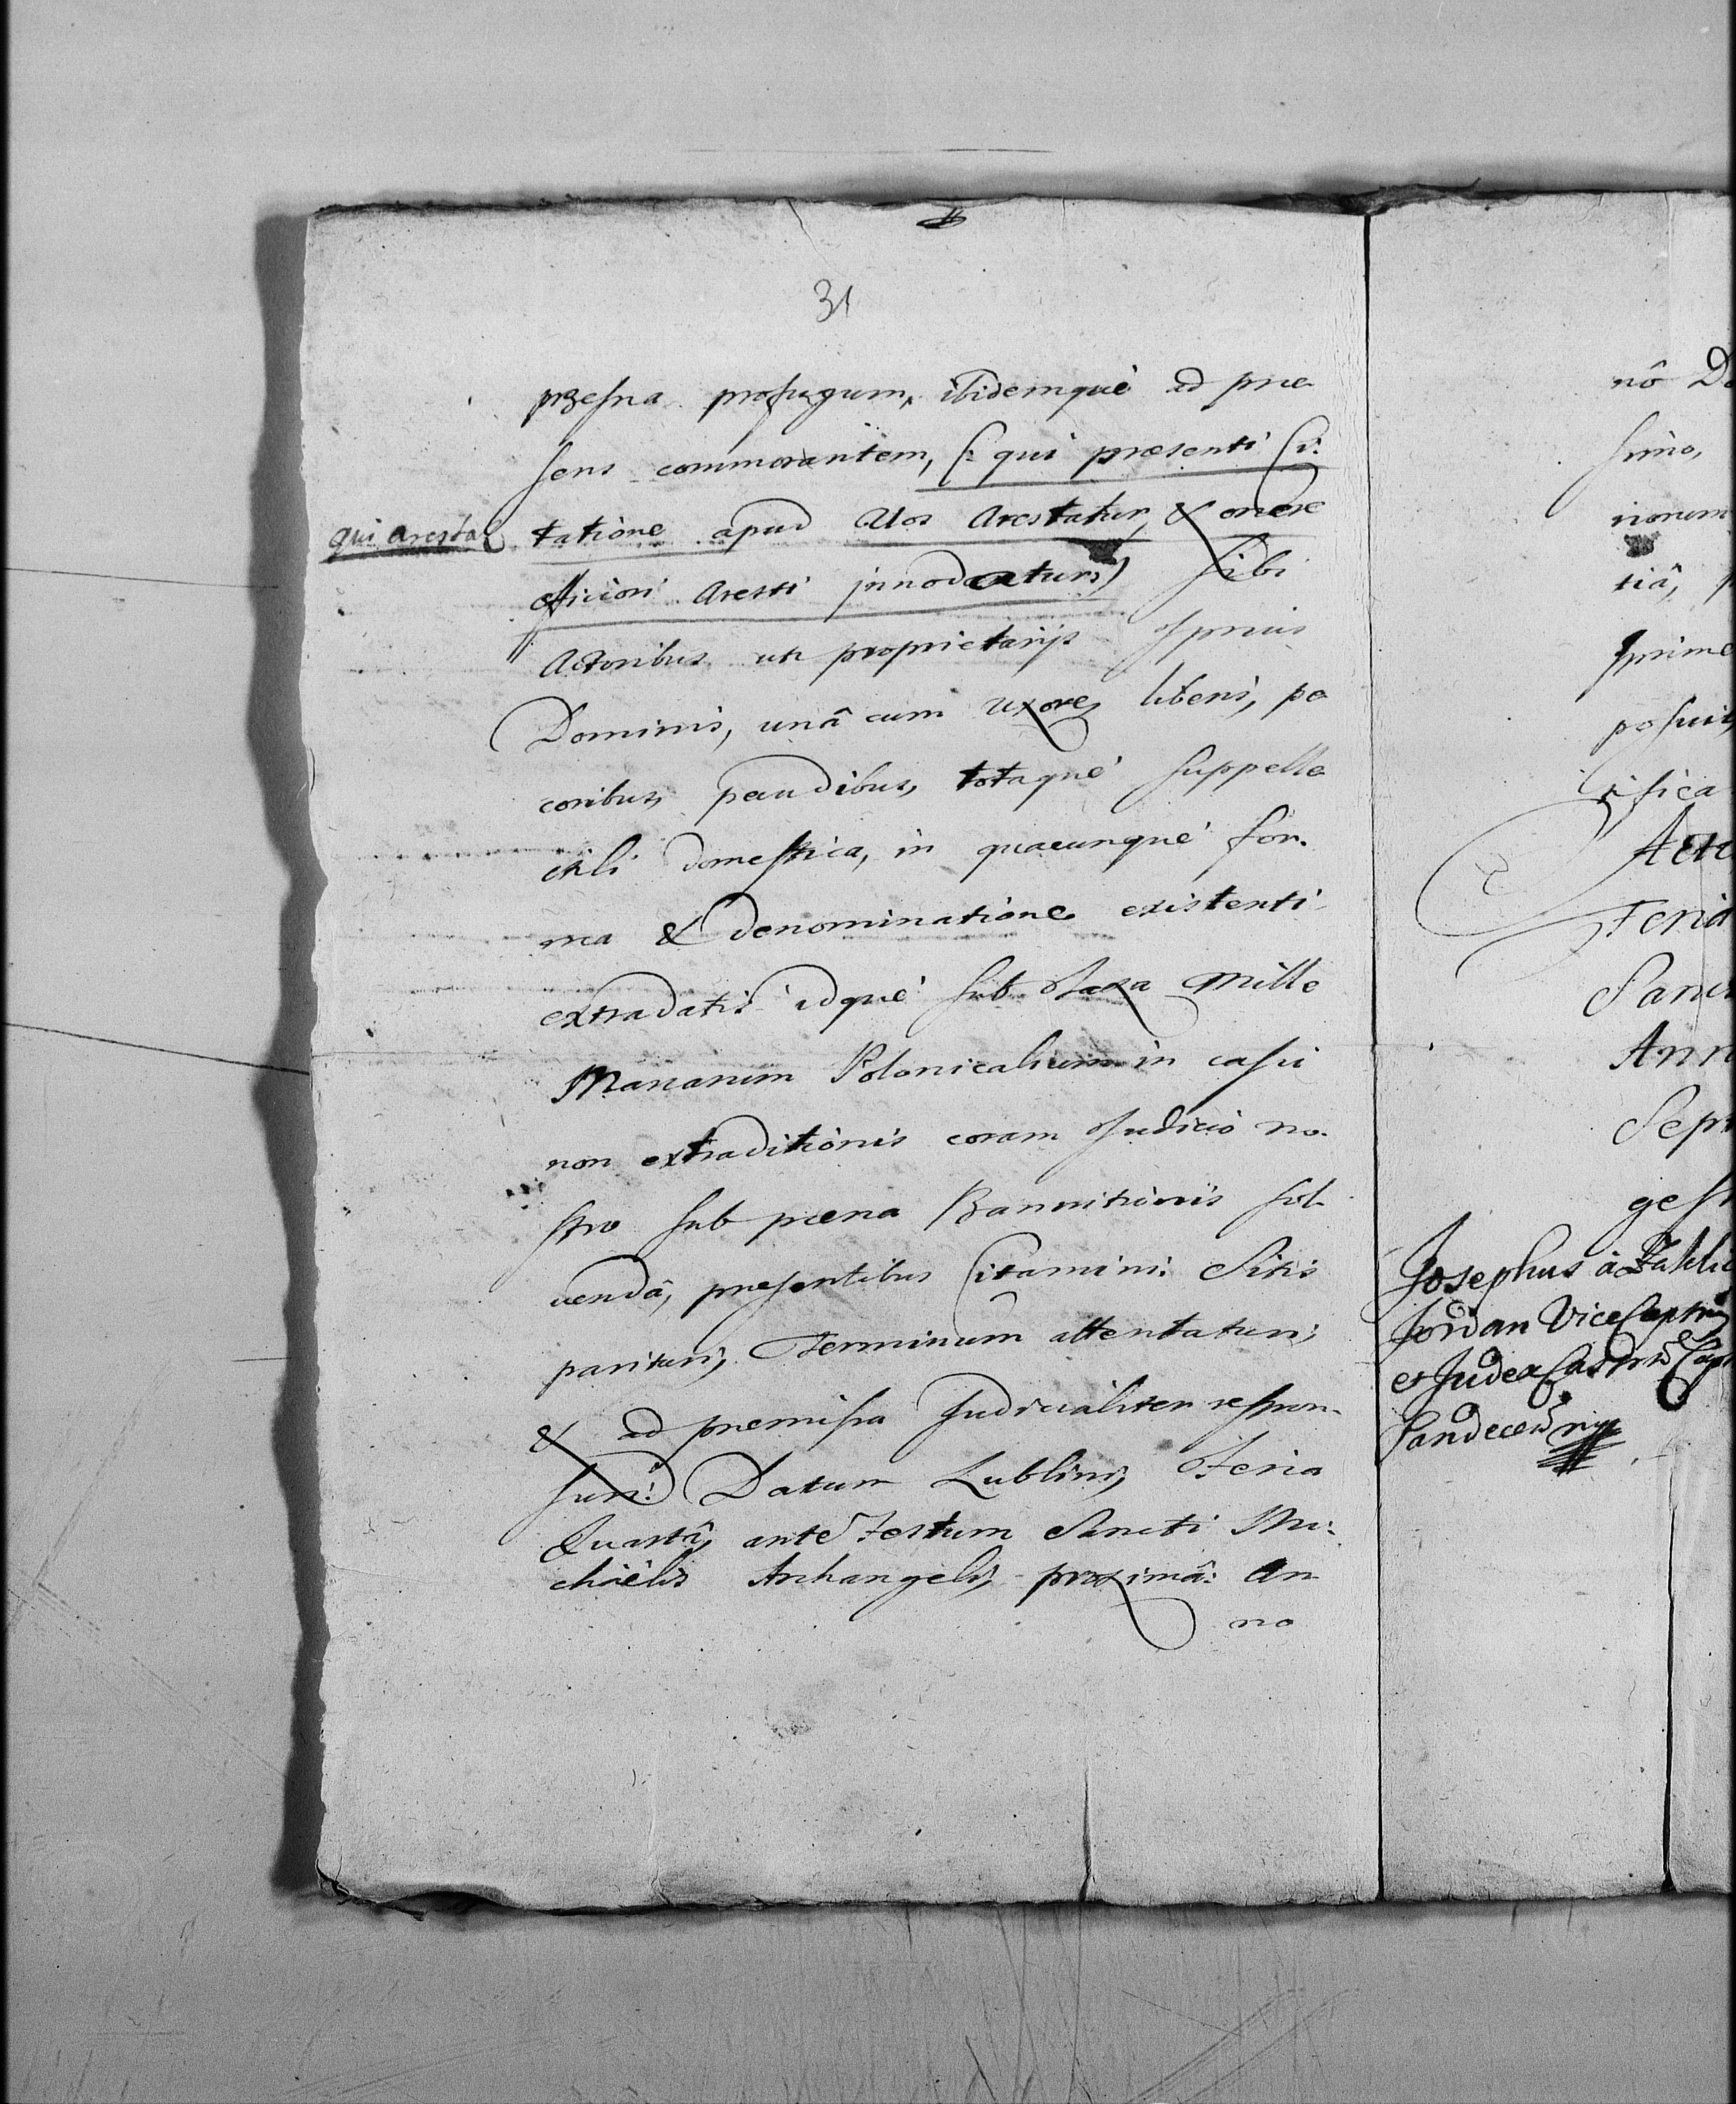 31
przesna profugum, ibidemque ad prae
sens commorantem, (: qui praesenti Ci:
qui aresta
tatione apud Vos Arestatur, & onere
officiori Aresti innodatur:) sibi
Actoribus uti proprietarijs Ipsius
Dominis, unâ cum Uxore, liberis, pe
coribus, pecudibus, totaque suppelle
ctili domestica, in quacunque for.
ma & denominatione existenti
extradatis idque sub Taxa Mille
Marcarum Polonicalium in casu
non extraditionis coram Judicio no.
stro sub paena Bannitionis sol
vendâ, presentibus Citamini: Sitis
parituri, Terminum attentaturi,
& ad premissa Judicialiter respon.
suri: Datum Lublini, Feria
Quartâ, ante Festum Sancti Mi:
chaëlis Archangeli, proximâ: An
no
nô De
simo,
norum
tiâ, p
prime
posuit,
sifica
Actu
Feria
Sanct
Ann
Sept
gesi
Josephus à Zaklic
Jordan ViceCaptn
et Judex Castrn Capt
Sandecen